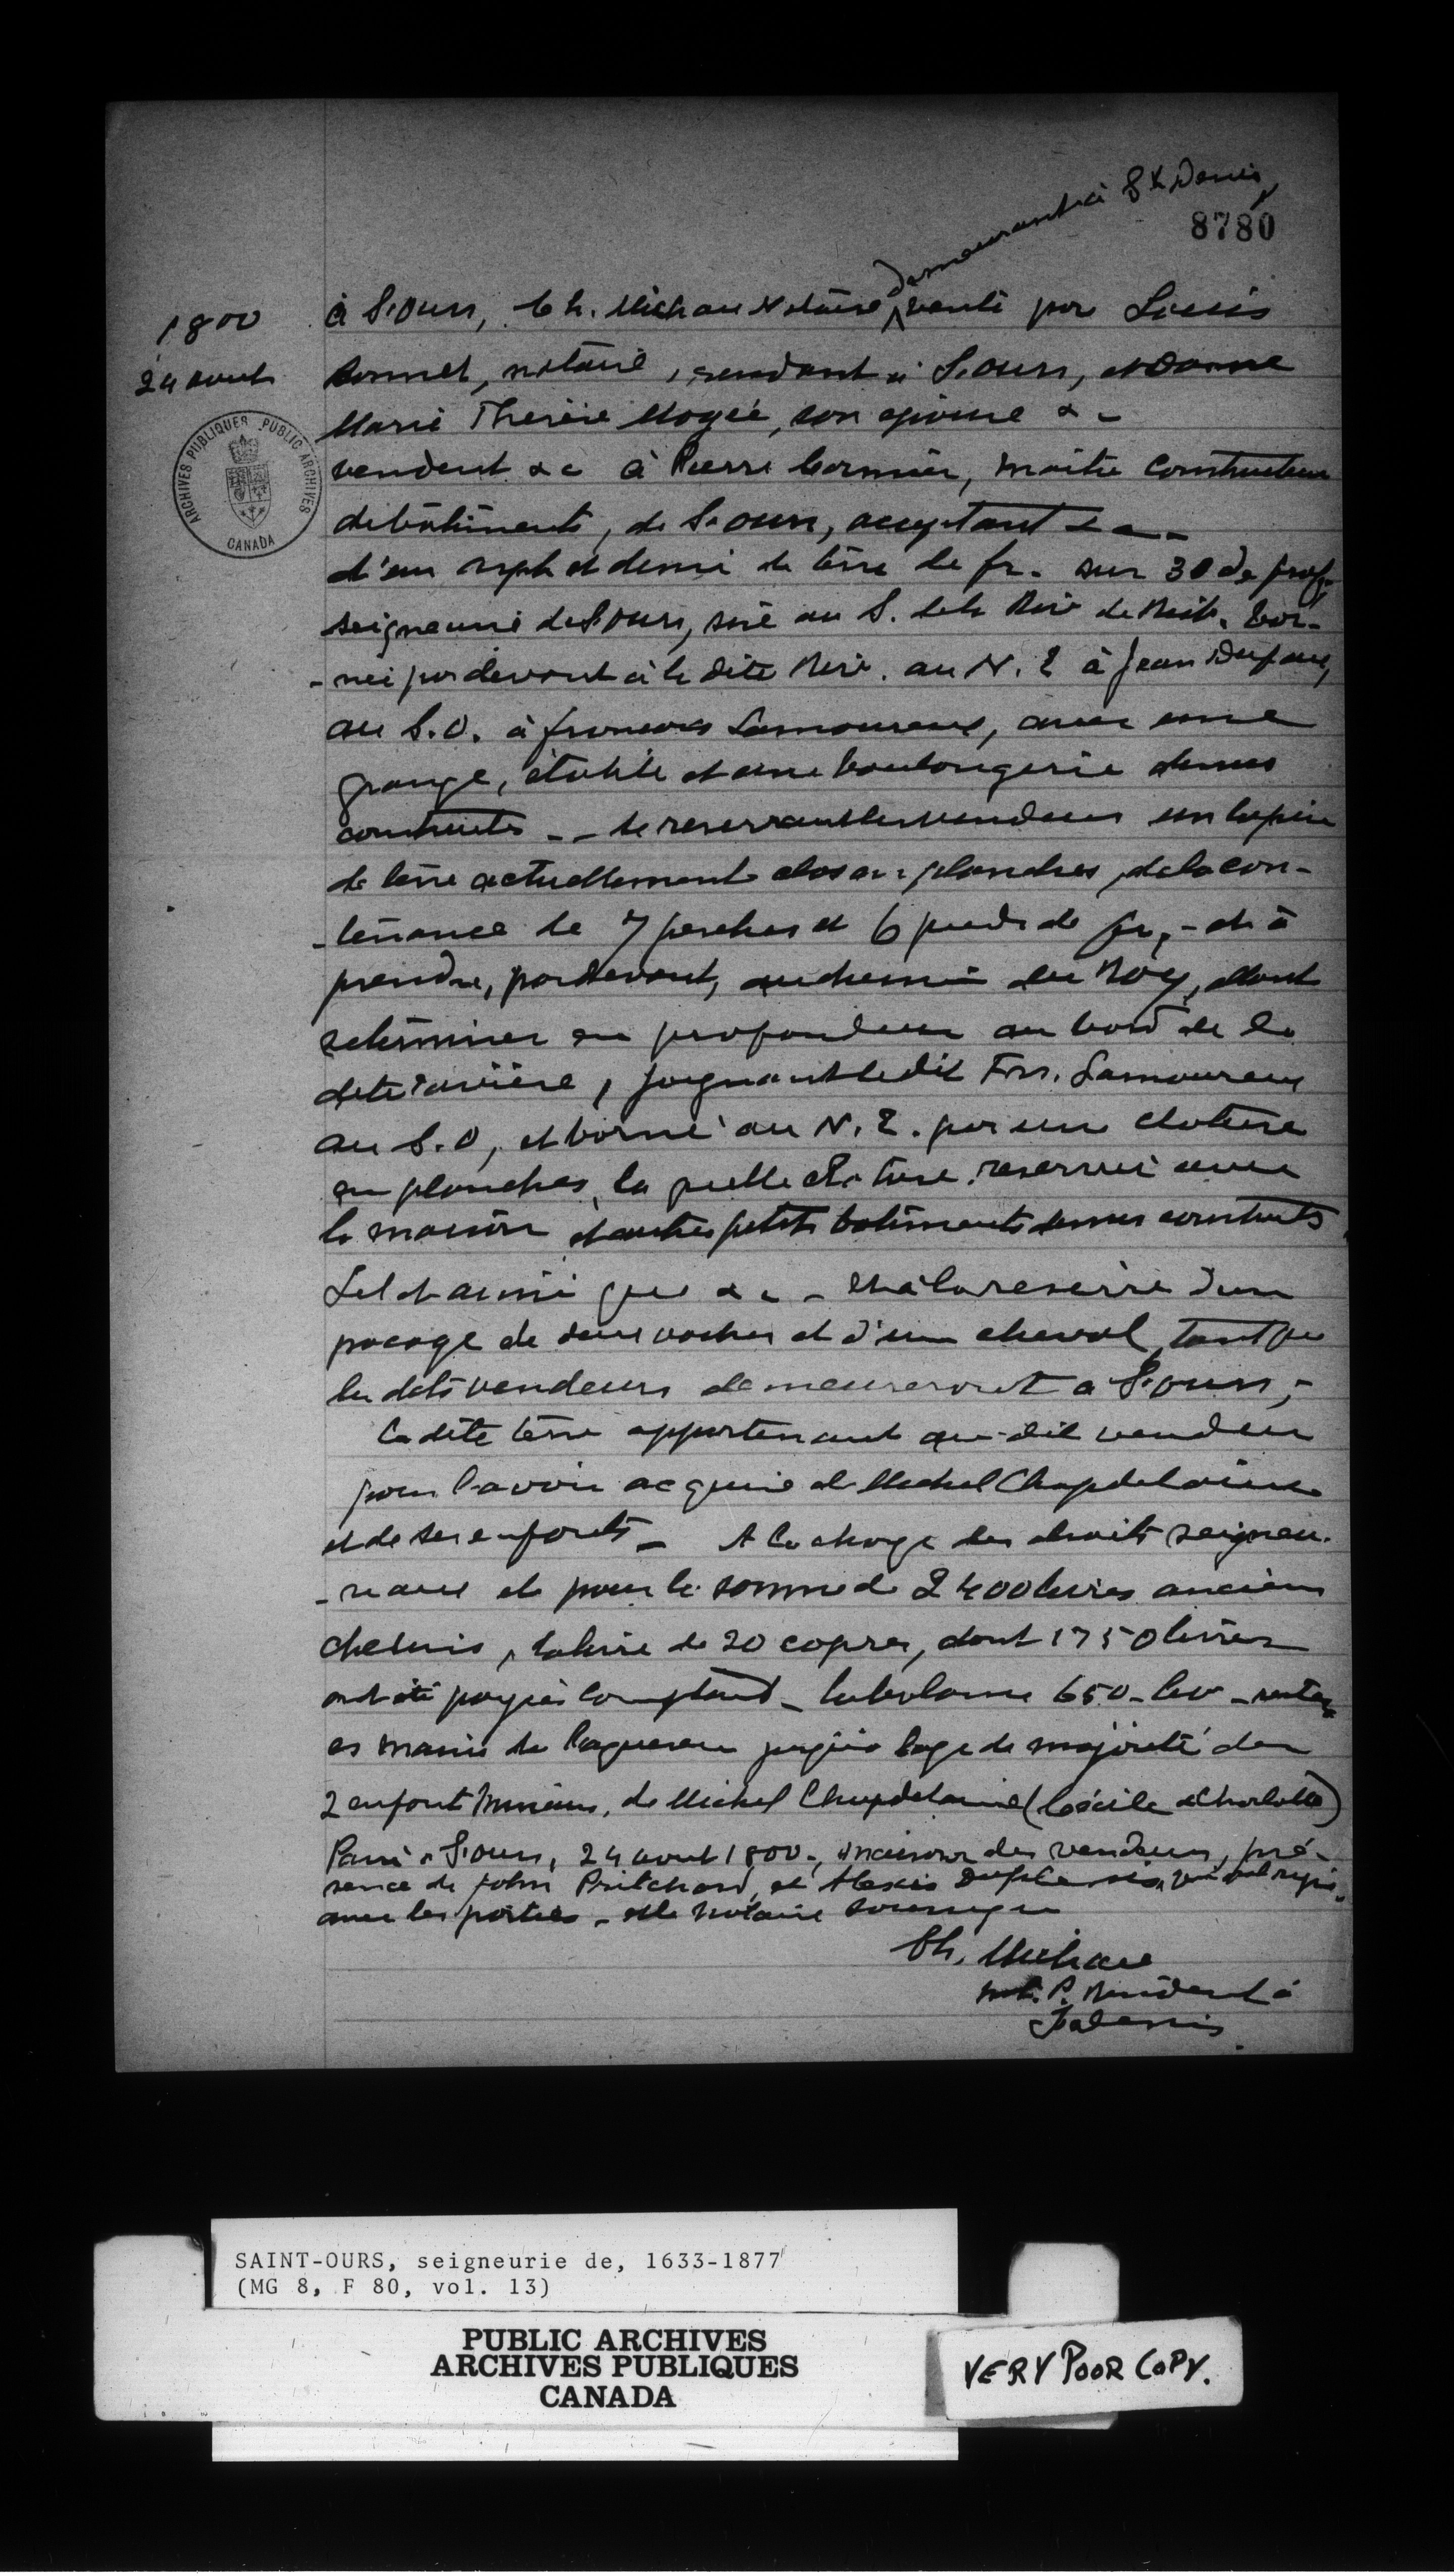 demeurant à St Denis,
8780
1800
24 aout
à S. Ours, Ch. Michau Notaire vente par Louis
Bonnet, notaire, residant à S. Ours, et Dame
Marie Therèse Mogée, son epouse &c
vendent &c à Pierre Cormier, maitre constructeur
de bâtiments, de S. Ours, acceptant &c
d'un arpt et demi de terre de fr. sur 30 de prof.
seigneurie de S. Ours, sise au S. de la Riv. de Rich. bor-
-née par devant à la dite Riv. au N. E à Jean
au S. O. à francois Lamoureux, avec une
grange, étable et une boulangerie dessus
construits - se reservant les vendeurs un lopin
de terre actuellement clos en planches, de la con-
-tenance de 7 perches et 6 pieds de fr, - et à
prendre, par devant, au chemin du Roy, dont
terminer en profondeur au bord de la
dite rivière, joignant le dit Frs. Lamoureux
au S. O, et borné au N. E. par une cloture
en planches, la quelle cloture reservée avec
la maison et autres petits batiments dessus construits
Tel et ainsi que &c - et à la reserve d'un
pacage de deux vaches et d'un cheval tant que
les dits vendeurs demeureront a S. Ours,-
La dite terre appartenant au dit vendeur
pour l'avoir acquise de Michel Chapdelaine
et de ses enfants - A la charge des droits seigneu-
-riaux et pour la somme de 2400 livres anciens
chelins, la livre de 20 copres, dont 1750 livres
ont été payées comptant - la balance 650 - liv - restera
es mains de l'aquereur jusqu'à l'age de majorité des
2 enfants mineurs, de Michel Chapdelaine (Cécile et Charlotte)
Passé à S. Ours, 24 aout 1800 -, maison des vendeurs, pré-
sence de John Pritchard, et Alexis Duplessis, qui ont signé
avec les parties - et le notaire soussigné
Ch. Michau
not. P. Résidant à
St Denis
ARCHIVES PUBLIQUES PUBLIC ARCHIVES
CANADA
SAINT-OURS, seigneurie de, 1633-1877
(MG 8, F 80, vol. 13)
PUBLIC ARCHIVES
ARCHIVES PUBLIQUES
CANADA
VERY POOR COPY.